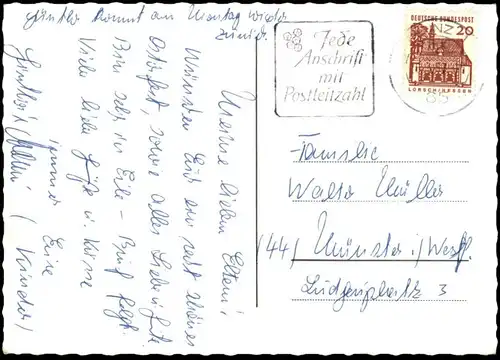 Günter kommt am Montag wieder
zurück
Meine lieben Eltern!
Wünschen Euch ein recht schönes
Osterfest, sowie alles Liebe u. Gute
Bin sehr in Eile - Brief folgt.
Viele liebe Grüße u. Küsse
immer Eure
Kinder
Jede
Anschrift
mit
Postleitzahl
DEUTSCHE BUNDESPOST
20
LORSCH/HESSEN
NZ
65
Familie
Walter Müller
(44) Münster i/Westf.
Ludgeriplatz 3